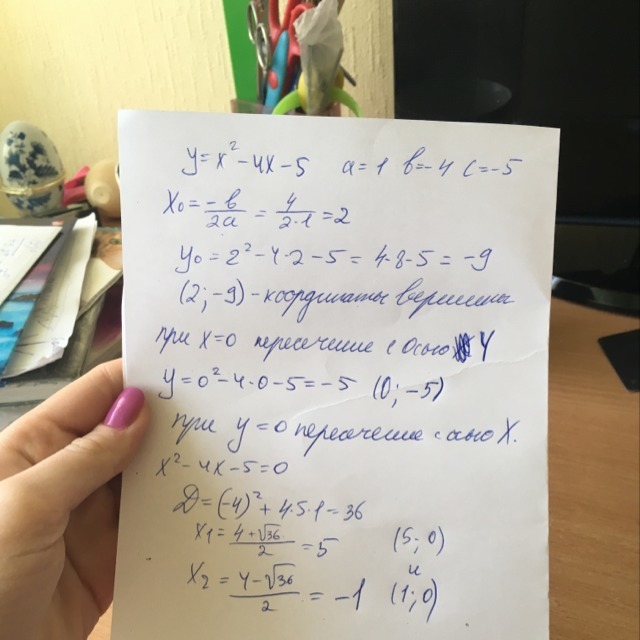 y=x²-4x-5 a=1 b=-4 c=-5
x₀=-b/2a=4/2·1=2
y₀=2²-4·2-5=4-8-5=-9
(2;-9)-координаты вершины
при x=0 пересечение с осью Y
y=0²-4·0-5=-5 (0;-5)
при y=0 пересечение с осью X.
x²-4x-5=0
D=(-4)²+4·5·1=36
x₁=4+√36/2=5 (5;0)
и
x₂=4-√36/2=-1 (1;0)